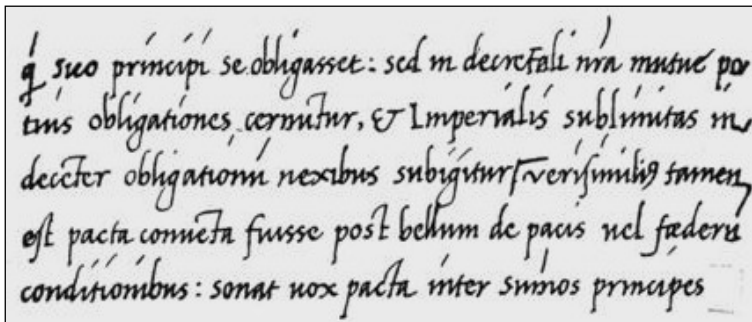 q̇ suo principi se obligasset: sed in decretali nr̃a mutue po
tius obligationes cernũtur, & Imperialis sublimitas in
decẽter obligationũ nexibus subigitur/ verisimiliꝰ tamen
est pacta conuẽta fuisse post bellum de pacis uel fœderũ
conditionibus: sonat uox pacta inter sũmos principes